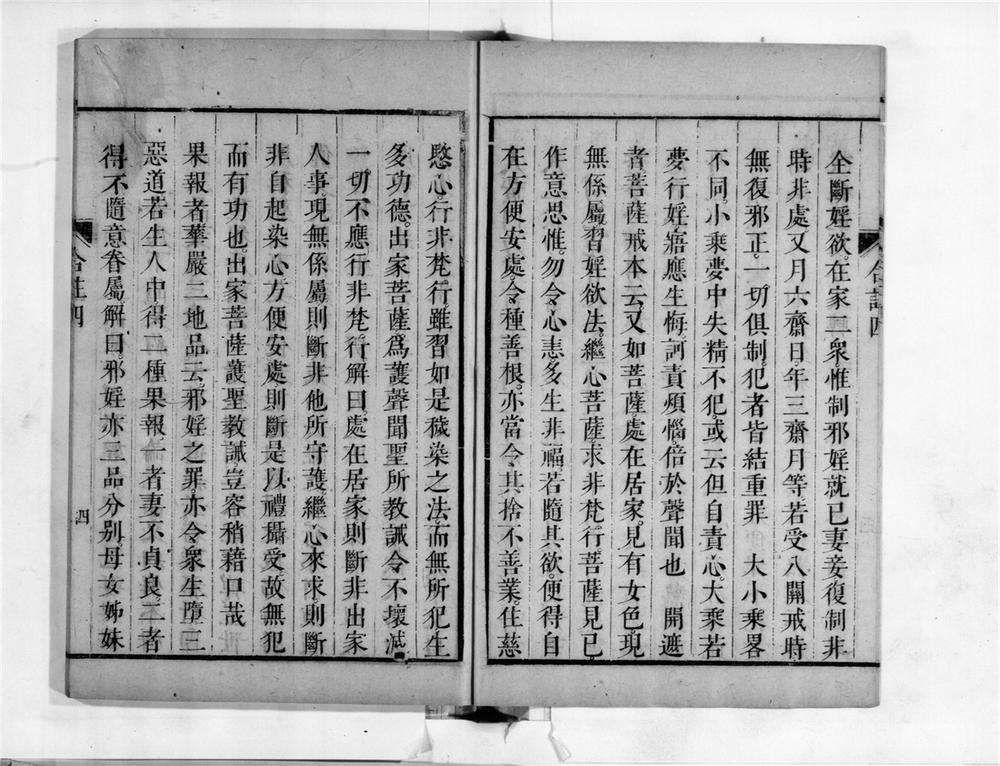 全斷婬欲。在家二衆。惟制邪婬就已妻妾復制非
時非處又月六齋日年三齋月等。若受八關戒時
無復邪正。一切俱制。犯者皆結重罪　大小乘畧
不同。小乘夢中失精不犯或云但自責心。大乘若
夢行婬寤應生悔訶責煩惱。倍於聲聞也　開遮
者菩薩戒本云又如菩薩。處在居家。見有女色。現
無係屬習婬欲法。繼心菩薩求非梵行。菩薩見已
作意思惟。勿令心恚。多生非福。若隨其欲。便得自
在方便安處令種善根。亦當令其捨不善業。住慈
愍心。行非梵行雖習如是穢染之法。而無所犯生
多功德。出家菩薩爲護聲聞聖所教誡令不壞滅
一切不應行非梵行。解曰。處在居家則斷非出家
人事。現無係屬則斷非他所守護。繼心來求。則斷
非自起染心方便安處則斷是以禮攝受故無犯
而有功也。出家菩薩護聖教誡。豈容稍藉口哉
果報者華嚴二地品云邪婬之罪亦令衆生墮三
惡道若生人中得二種果報一者妻不貞良。二者
得不隨意眷屬解曰。邪婬亦三品分別母女姊妹
合註四
四